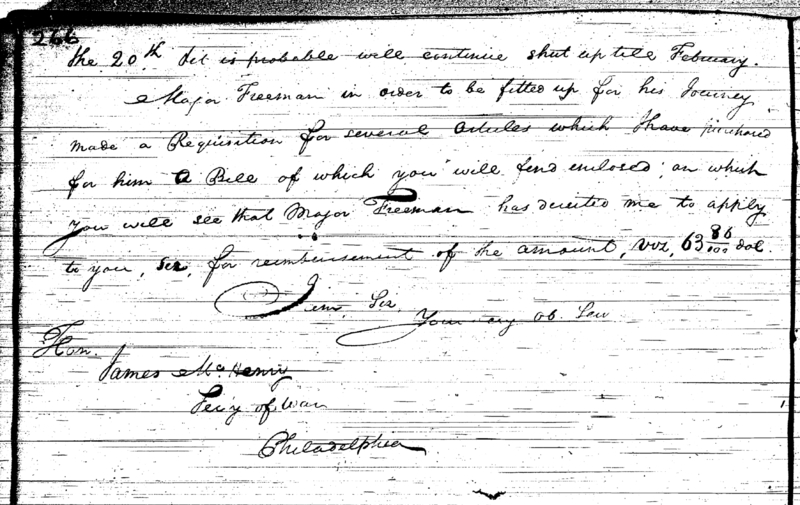 266
the 20th it is probable will continue shut up till February.
Major Freeman in order to be fitted up for his Journey
made a Requisition for several articles which I have purchased
for him a Bill of which you will find enclosed; on which
you will see that Major Freeman has directed me to apply
to you, Sir, for reimbursement of the amount, viz, 63 86/100 dol.
I am Sir,
Your ob. Ser
Hon.
James McHenry
Secy of War
Philadelphia